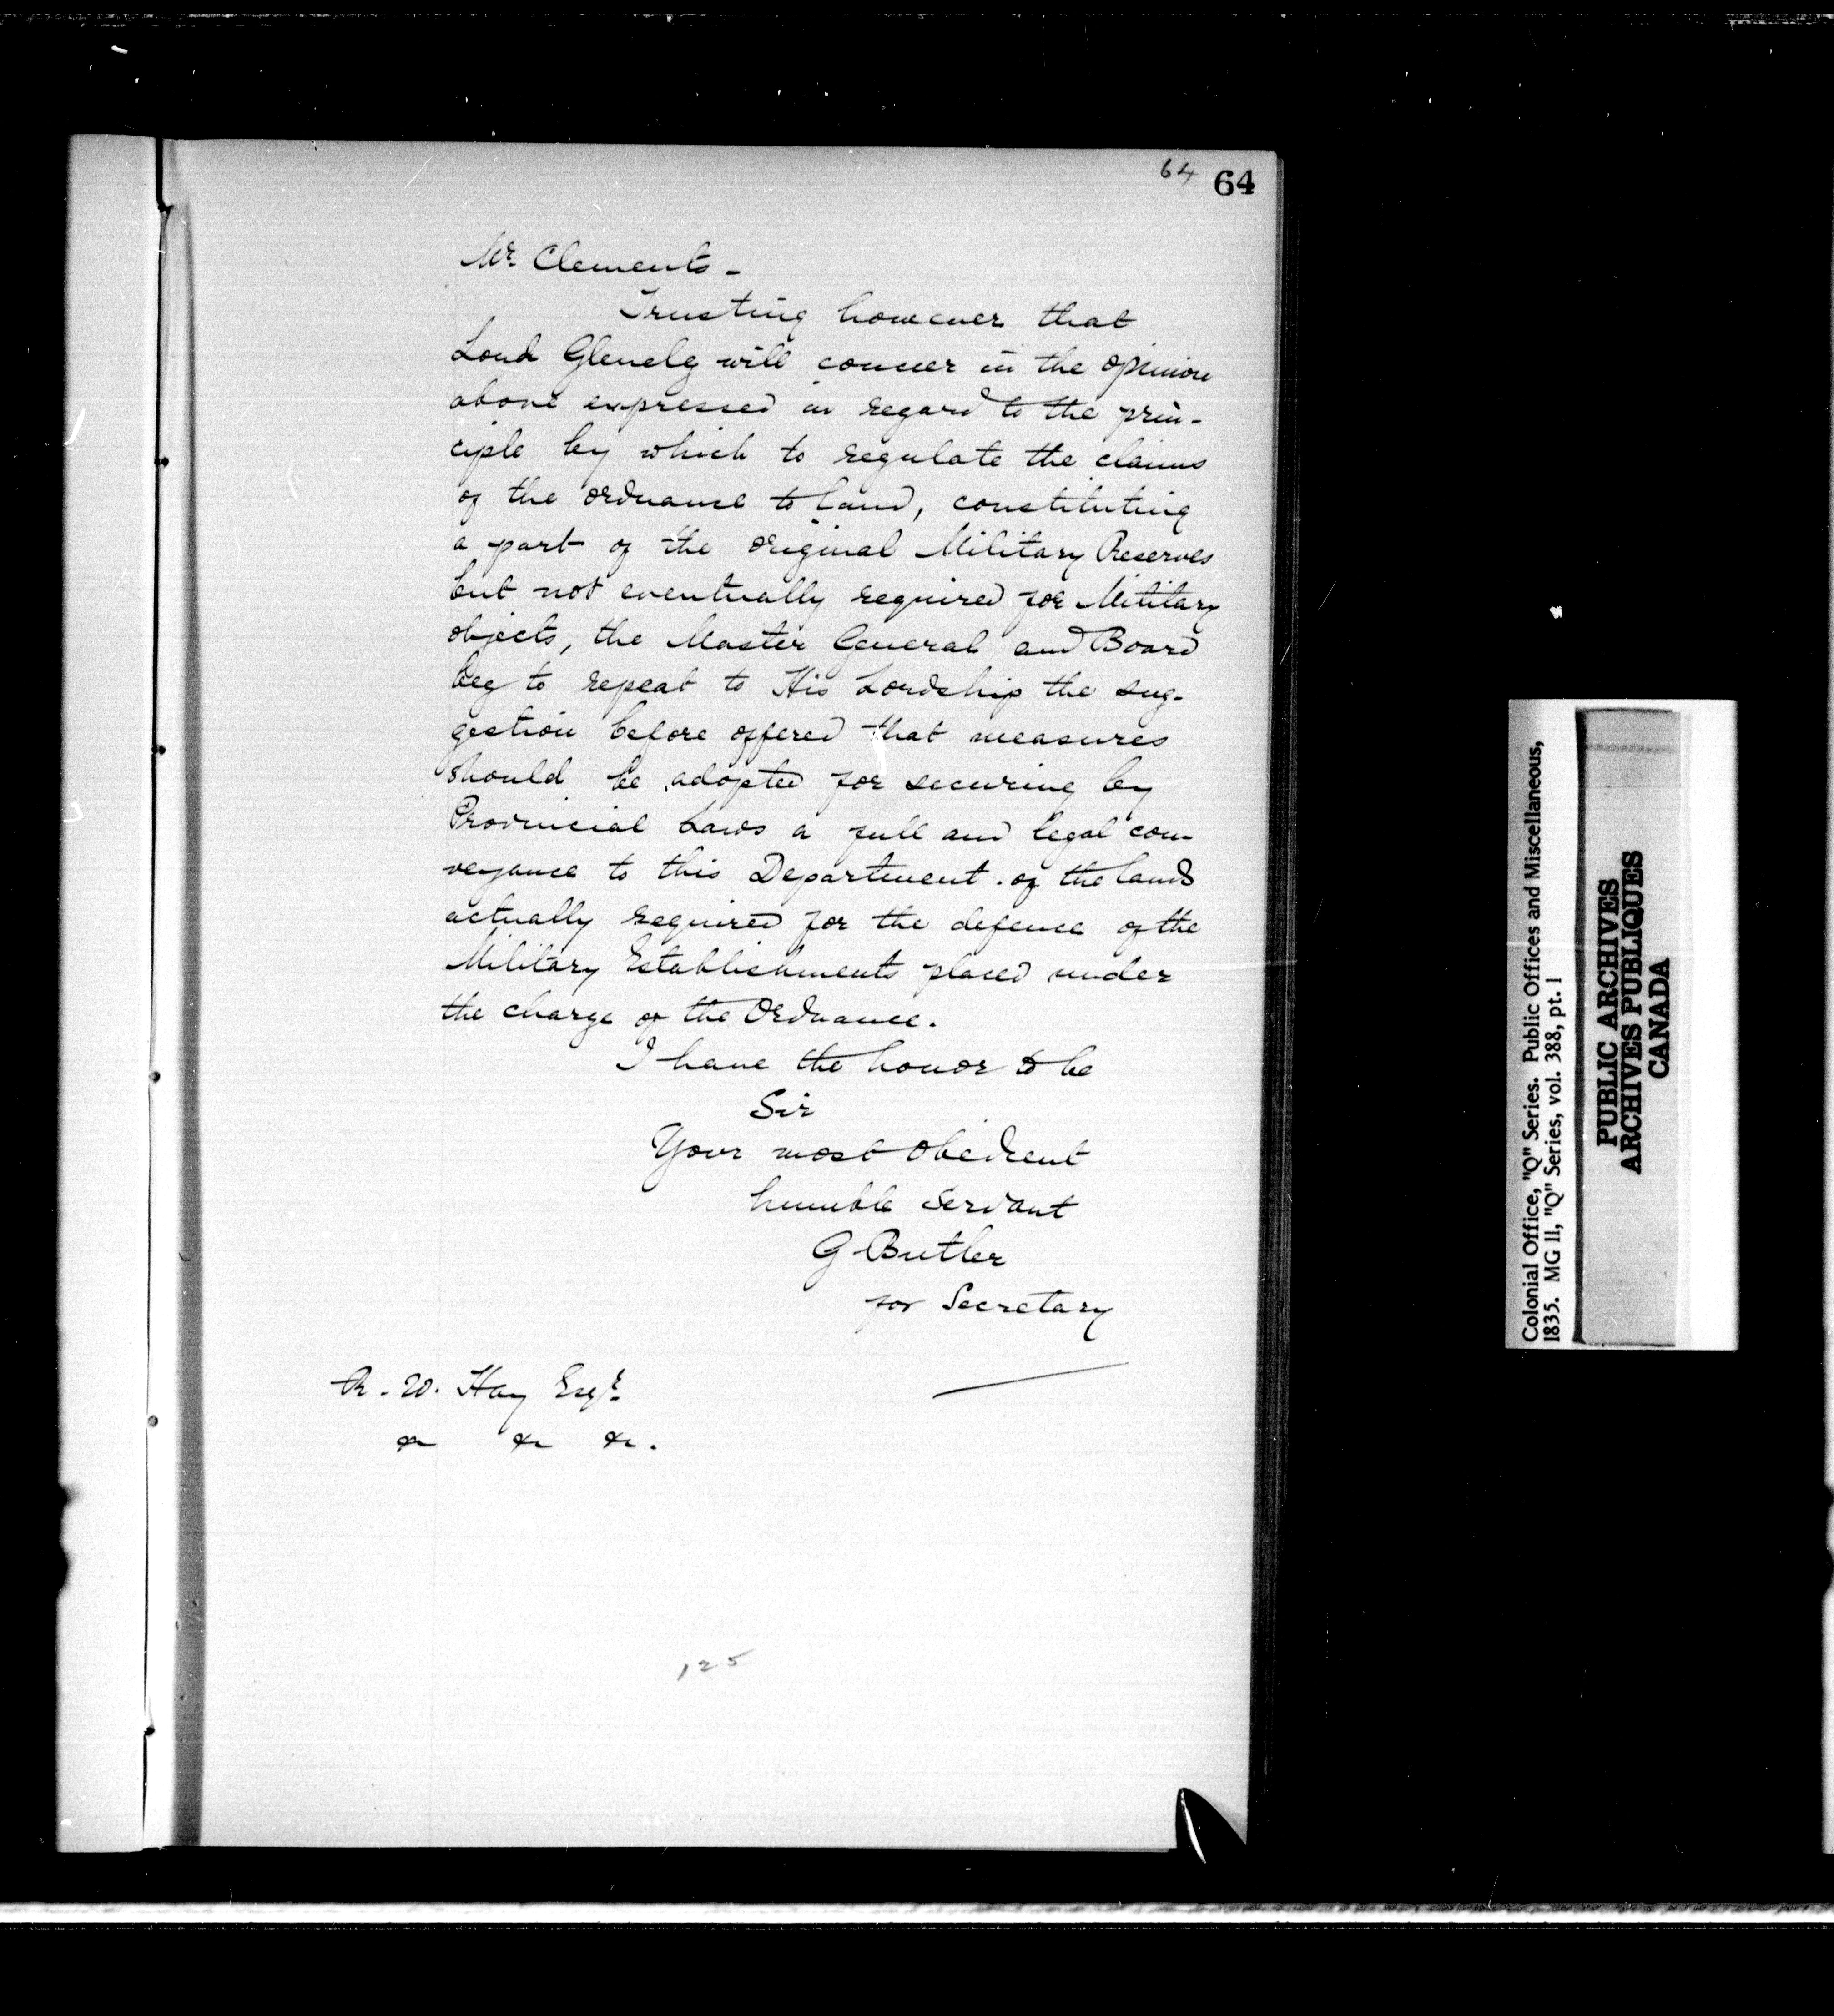 64 64
Mr. Clements -
Trusting however that
Lord Glenelg will concur in the opinion
above expressed in regard to the prin-
ciple by which to regulate the claims
of the Ordnance to land, constituting
a part of the original Military Reserves
but not eventually required for Military
objects, the Master General and Board
beg to repeat to His Lordship the sug-
gestion before offered that measures
should be adopted for securing by
Provincial Laws a full and legal con-
veyance to this Department. of the lands
actually required for the defence of the
Military Establishments placed under
the charge of the Ordnance.
I have the honor to be
Sir
Your most obedient
humble Servant
G Butler
for Secretary
R. W. Hay Esqr.
&c &c &c.
125
Colonial Office, "Q" Series. Public Offices and Miscellaneous,
1835. MG 11, "Q" Series, vol. 388, pt. 1
PUBLIC ARCHIVES
ARCHIVES PUBLIQUES
CANADA